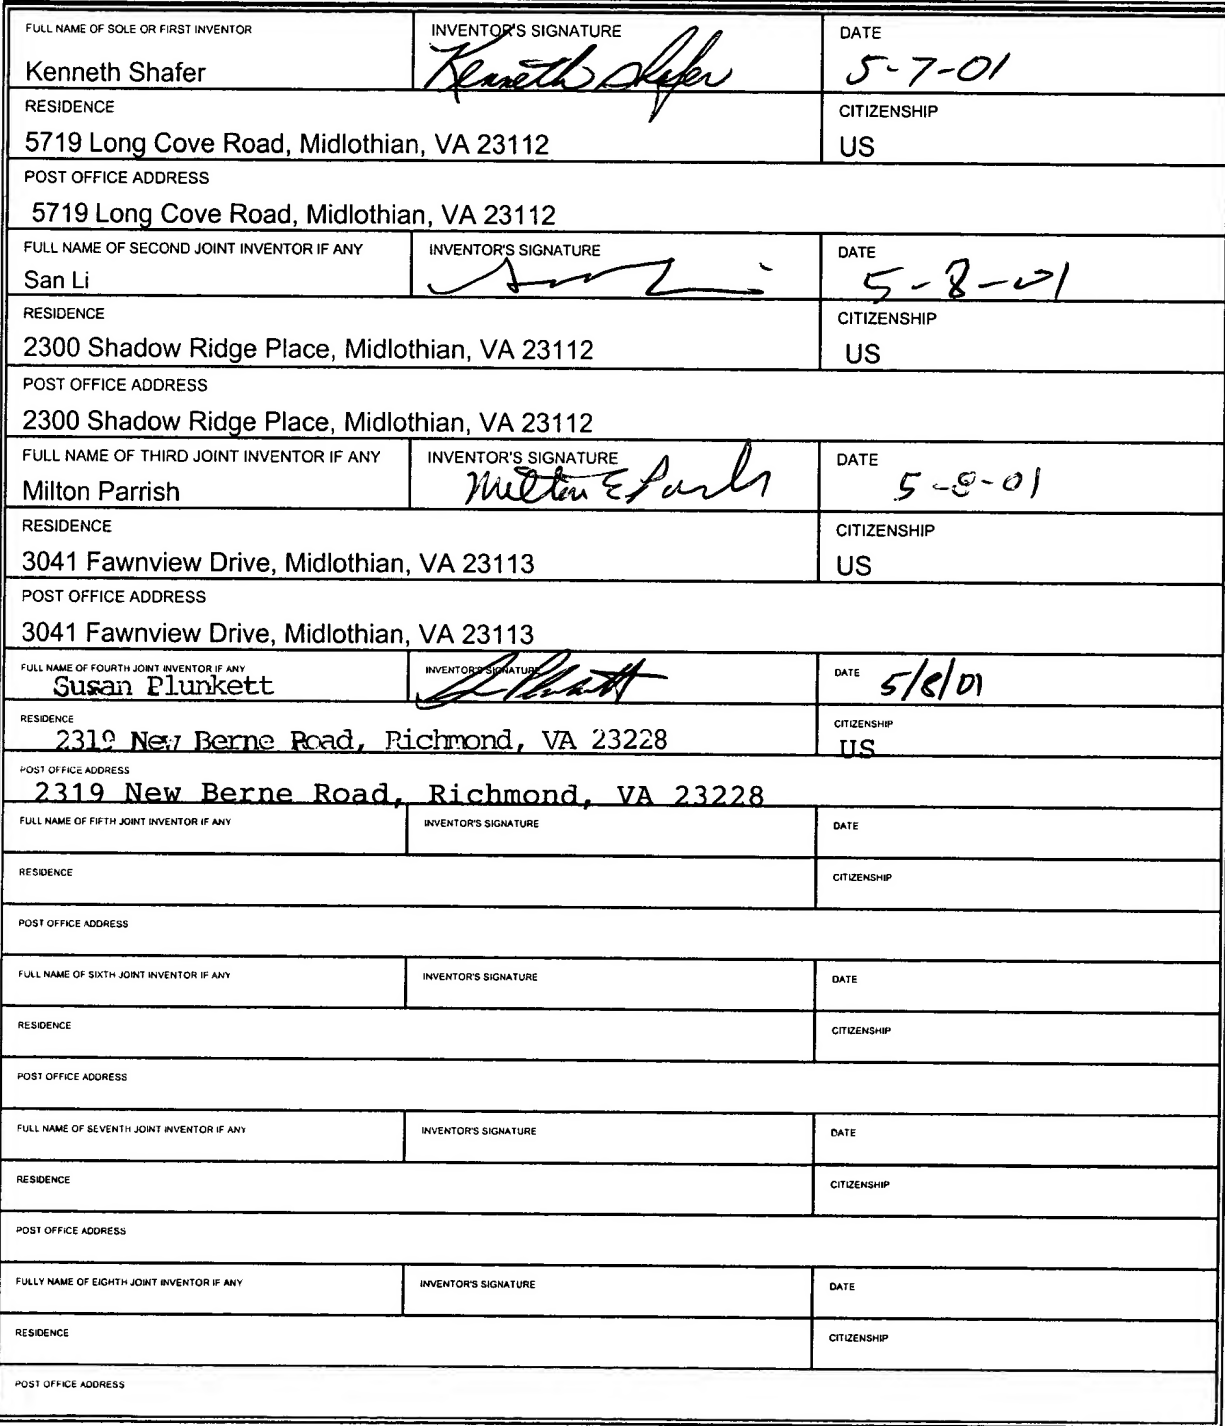 FULL NAME OF SOLE OR FIRST INVENTOR INVENTOR'S SIGNATURE DATE
Kenneth Shafer Kenneth Shafer 5-7-01
RESIDENCE CITIZENSHIP
5719 Long Cove Road, Midlothian, VA 23112 US
POST OFFICE ADDRESS
5719 Long Cove Road, Midlothian, VA 23112
FULL NAME OF SECOND JOINT INVENTOR IF ANY INVENTOR'S SIGNATURE DATE
San Li 5-8-01
RESIDENCE CITIZENSHIP
2300 Shadow Ridge Place, Midlothian, VA 23112 US
POST OFFICE ADDRESS
2300 Shadow Ridge Place, Midlothian, VA 23112
FULL NAME OF THIRD JOINT INVENTOR IF ANY INVENTOR'S SIGNATURE DATE
Milton Parrish Milton E 5-8-01
RESIDENCE CITIZENSHIP
3041 Fawnview Drive, Midlothian, VA 23113 US
POST OFFICE ADDRESS
3041 Fawnview Drive, Midlothian, VA 23113
FULL NAME OF FOURTH JOINT INVENTOR IF ANY INVENTOR'S SIGNATURE DATE
Susan Plunkett 5/8/01
RESIDENCE CITIZENSHIP
2319 New Berne Road, Richmond, VA 23228 US
POST OFFICE ADDRESS
2319 New Berne Road, Richmond, VA 23228
FULL NAME OF FIFTH JOINT INVENTOR IF ANY INVENTOR'S SIGNATURE DATE
RESIDENCE CITIZENSHIP
POST OFFICE ADDRESS
FULL NAME OF SIXTH JOINT INVENTOR IF ANY INVENTOR'S SIGNATURE DATE
RESIDENCE CITIZENSHIP
POST OFFICE ADDRESS
FULL NAME OF SEVENTH JOINT INVENTOR IF ANY INVENTOR'S SIGNATURE DATE
RESIDENCE CITIZENSHIP
POST OFFICE ADDRESS
FULLY NAME OF EIGHTH JOINT INVENTOR IF ANY INVENTOR'S SIGNATURE DATE
RESIDENCE CITIZENSHIP
POST OFFICE ADDRESS